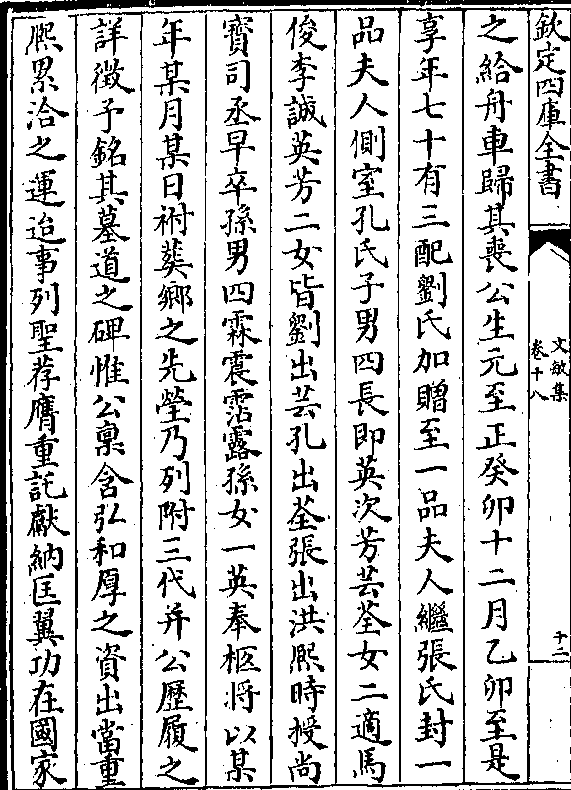 欽定四庫全書
文敏集
卷十八
十二
之給舟車歸其喪公生元至正癸卯十二月乙卯至是
享年七十有三配劉氏加贈至一品夫人繼張氏封一
品夫人側室孔氏子男四長即英次芳芸荃女二適馬
俊李誠英芳二女皆劉出芸孔出荃張出洪熈時授尚
寳司丞早卒孫男四霖震霑露孫女一英奉柩將以某
年某月某日祔𦵏鄉之先塋乃列附三代并公歴履之
詳徴予銘其墓道之碑惟公稟含弘和厚之資出當重
熈累洽之運迨事列聖荐膺重託獻納匡翼功在國家